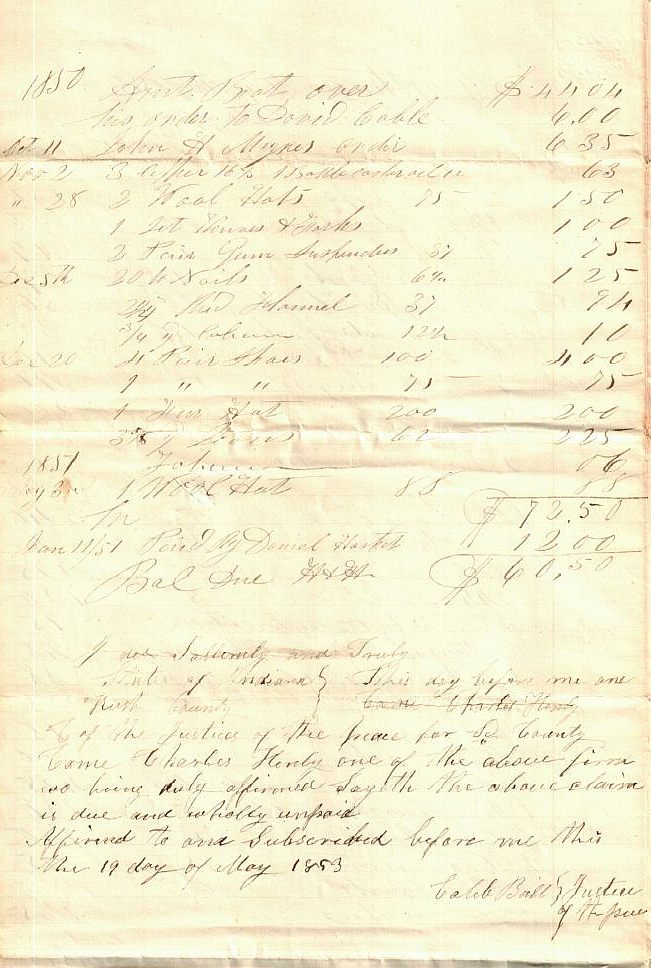 1850 Amt. Brot over $ 44 04
his order to David Cable 6.00
Oct 11 John H order 6 35
Nov 2 3 63
" 28 2 Wool Hats 75 1 50
1 Set Knives & Forks 1 00
2 Pair Gum Suspenders 75
Dec 5th 20 lb Nails 6¼ 1 25
Red Flannel 37 94
3/4 y 12½ 10
20 4 Pair 100 4 00
1 " " 75 75
1 Fur Hat 200 200
y 2 25
1851 06
1 Wool Hat 88 88
$ 72.50
Jan 11/51 Paid By Daniel 12 00
Bal Due H & H $ 60.50
I do Solemnly and Truly
State of Indiana } This day before me one
Rush County } Came Charles Henly
of the Justices of the peace for Sd County
Came Charles Henly one of the above firm
who being duly affirmed Sayeth the above claim
is due and wholly unpaid
Affirmd to and Subscribed before me this
the 19 day of May 1853
Caleb } Justice
of the peace